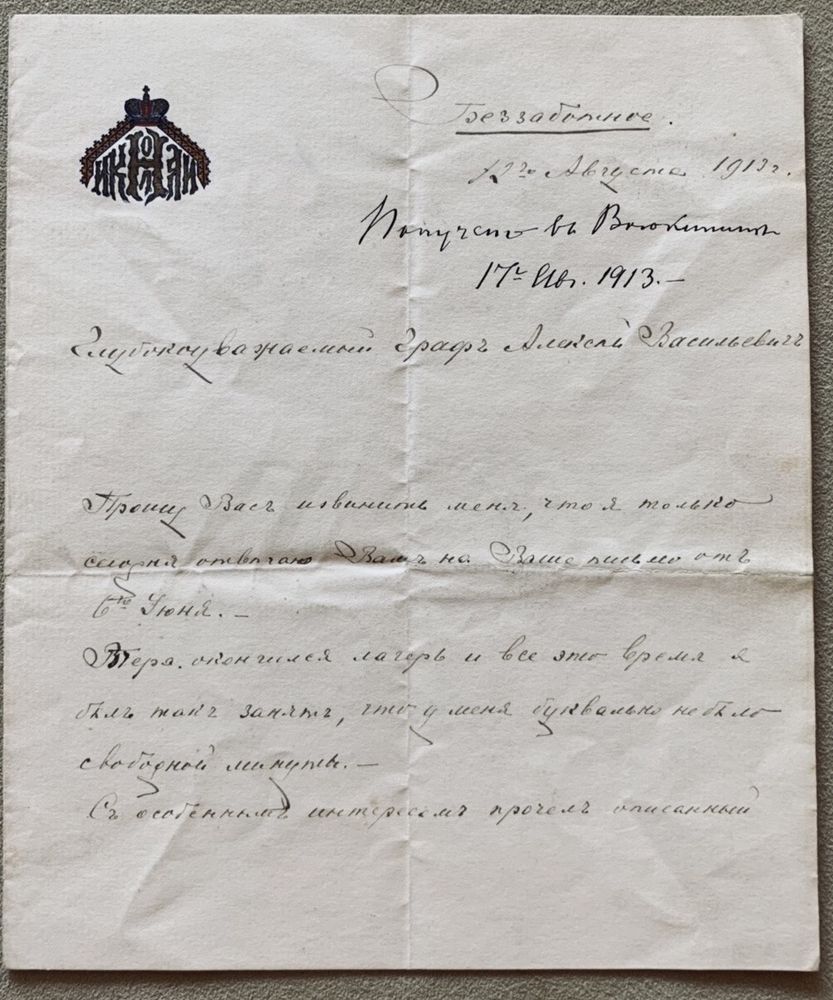 НИКОЛАЙ
Беззаботное.
12го Августа 1913 г.
Получено въ
17го Авг. 1913. –
Глубокоуважаемый Графъ Алексѣй Васильевичъ
Прошу Васъ извинить меня, что я только
сегодня отвѣчаю Вамъ на Ваше письмо отъ
6го Iюня. –
Вчера окончился лагерь и все это время я
былъ такъ занятъ, что у меня буквально не было
свободной минуты. –
Съ особеннымъ интересомъ прочелъ описанный